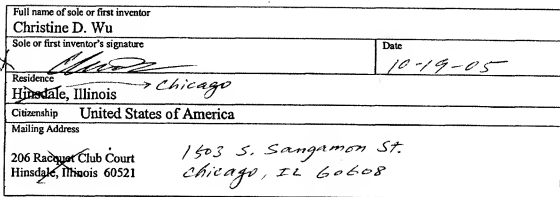 Full name of sole or first inventor
Christine D. Wu
Sole or first inventor's signature Date
10-19-05
Residence
Hinsdale, Illinois Chicago
Citizenship United States of America
Mailing Address
206 Racquet Club Court 1503 S. Sangamon St.
Hinsdale, Illinois 60521 Chicago, IL 60608